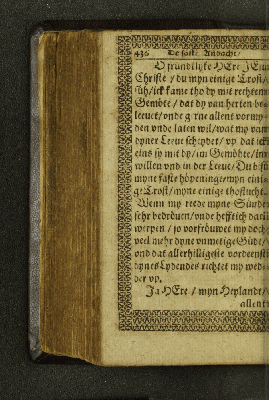 436 De sost. Andacht/
O fründtlyke HEre JEsu
Christe / du myn einige Trost/
süh/ick kame tho dy mit rechtem
Gemöte / dat dy van herten be-
leeuet/vnde gerne allent vormy-
den vnde laten wil/wat my van
dyner Leeue scheydet / vp dat ick
eins sy mit dy/im Gemöhte/im
willen vnd in der Leeue/ Du bist
mynt faste höpeninge/myn eini-
ge Trost/myne einige thoflucht.
Wenn my rede myne Sünde
sehr bedröuen/vnde hefftich dar
werpen / so vortröuwet my doch
veel mehr dyne vnmetige Güde/
vnd dat allerhilligeste vordeenst
dynes Lydendes richtet my wed-
der vp.
Ja HEre / myn Heylandt/
allent